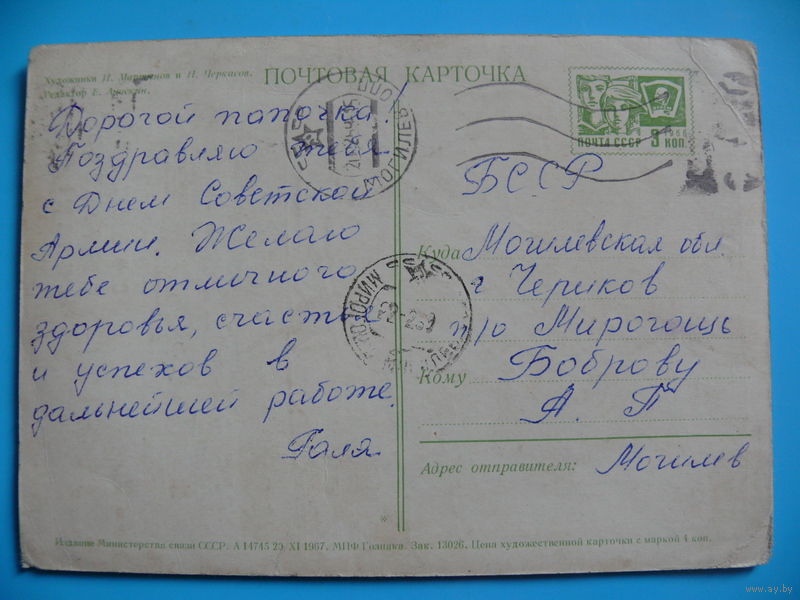 Художники И. Мартынов и Н. Черкасов.
Редактор Е. Анискин.
ПОЧТОВАЯ КАРТОЧКА
ПОЧТА СССР 3 КОП.
Дорогой папочка!
Поздравляю тебя
с Днем Советской
Армии. Желаю
тебе отличного
здоровья, счастья
и успехов в
дальнейшей работе.
Галя.
БССР
Куда Могилевская обл
г Чериков
п/о Мирогощь
Кому Боброву
А. П
Адрес отправителя: Могилев
Издание Министерства связи СССР. А 14745 25/XI 1967. МПФ Гознака. Зак. 13026. Цена художественной карточки с маркой 4 коп.
www.ay.by